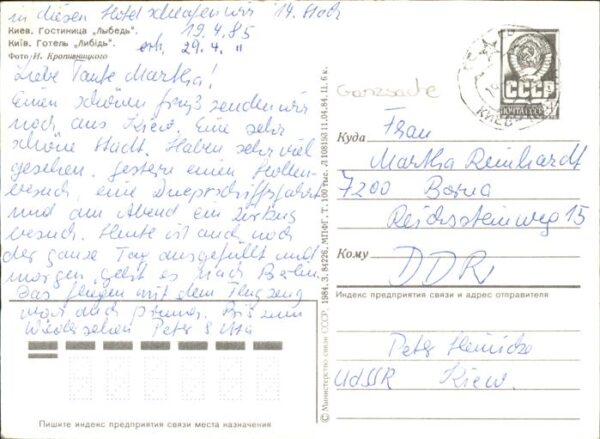 in diesen Hotel schlafen wir 14. Stock
Киев. Гостиница „Лыбедь”.
19.4.85
Київ. Готель „Либідь”.
erh. 29.4. "
Фото И. Кропивницкого
Liebe Tante Martha!
Einen schönen Gruß senden wir
noch aus Kiew. Eine sehr
schöne Stadt. Haben sehr viel
gesehen. Gestern einen Höhlen-
besuch, eine Dneprschiffsfahrt
und am Abend ein Zirkus
besuch. Heute ist auch noch
der ganze Tag ausgefüllt und
morgen geht es nach Berlin.
Das fliegen mit dem Flugzeug
war auch prima. Bis zum
Wiedersehen Peter &
Пишите индекс предприятия связи места назначения
© Министерство связи СССР. 1984. З. 84226. МПФГ. Т. 100 тыс. 13.04.84. Ц. 6 к.
Ganzsache
СССР
ПОЧТА СССР
КИЕВ
Куда
Frau
Martha Reinhardt
7200 Borna
Reichssteinweg 15
Кому
DDR
Индекс предприятия связи и адрес отправителя
Peter
UdSSR Kiew.